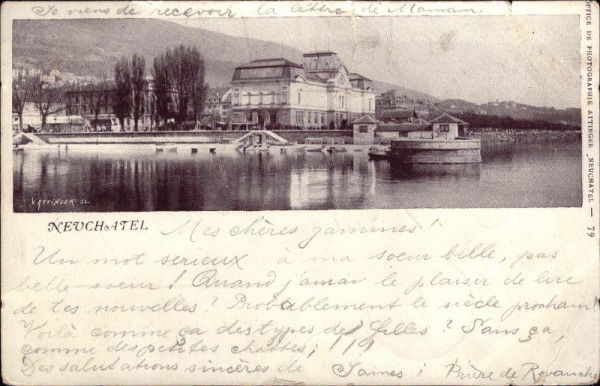 Je viens de recevoir la lettre de Maman.
OFFICE DE PHOTOGRAPHIE ATTINGER _ NEUCHATEL — 79
V. ATTINGER SC.
NEUCHATEL
Mes chères gamines!
Un mot serieux à ma soeur bille, pas
belle-soeur! Quand j'aurai le plaisir de lire
de tes nouvelles? Probablement le siècle prochain!
Voilà comme ça des types de filles? Sans ça,
comme des petites chattes; !!!
Des salutations sincères de James; Prière de Revanche